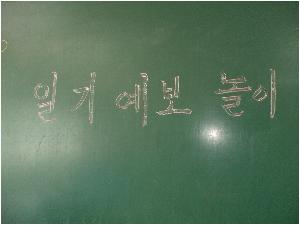 일기예보 놀이